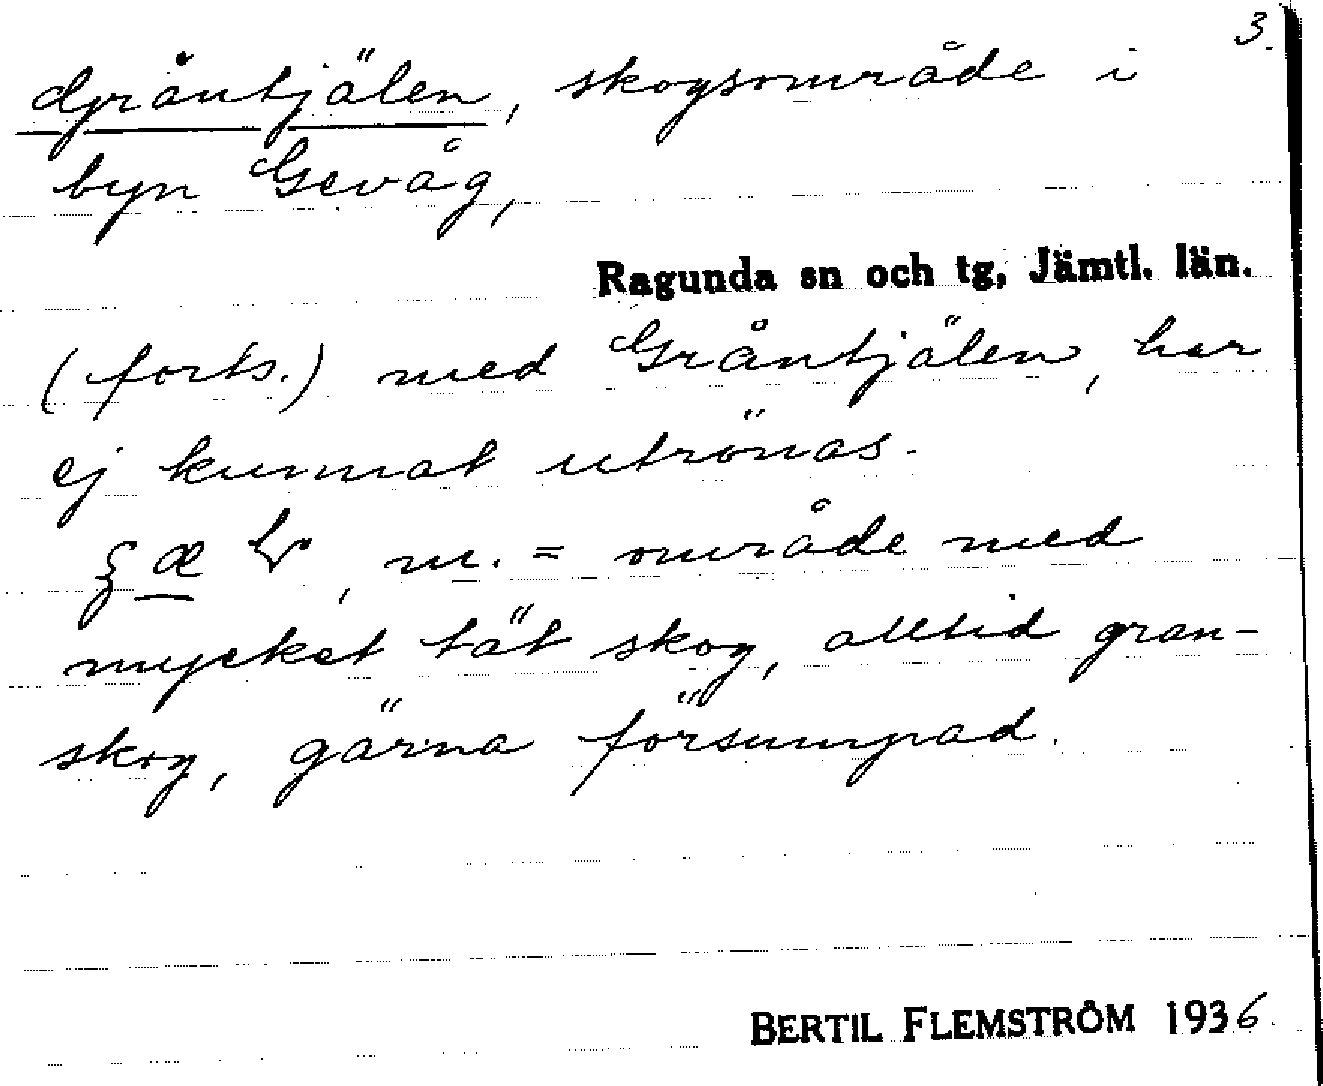 3.
Gråntjälen, skogsområde i
byn Gevåg,
Ragunda sn och tg, Jämtl. län.
(forts.) med Gråntjälen, har
ej kunnat utrönas.
, m. = område med
mycket tät skog, alltid gran-
skog, gärna försumpad.
BERTIL FLEMSTRÖM 1936